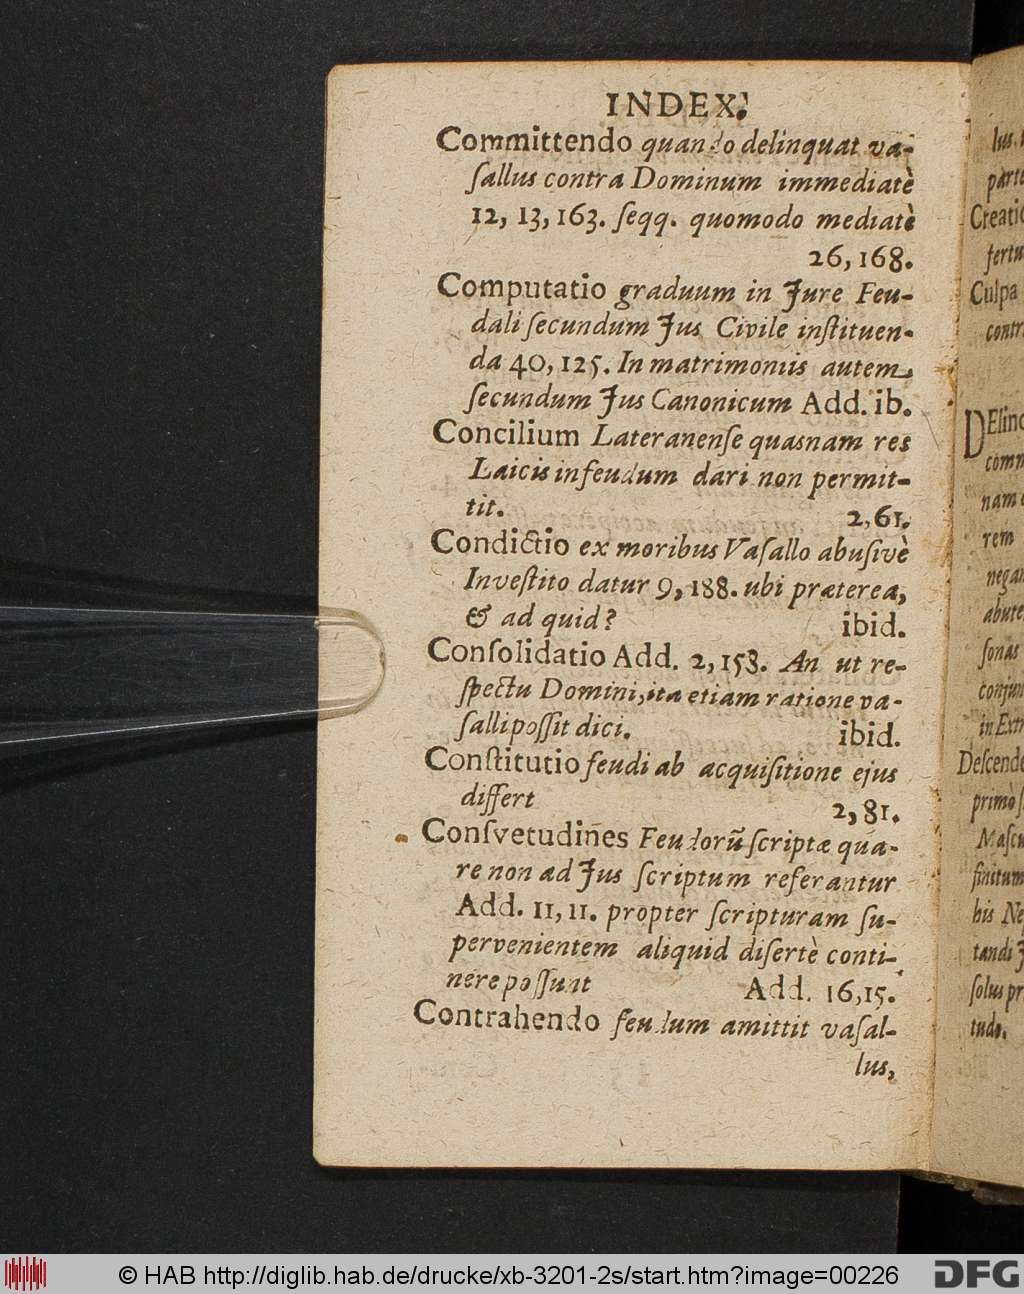 INDEX.
Committendo quando delinquat va-
ſallus contra Dominum immediatè
12, 13, 163. ſeqq. quomodo mediatè
26, 168.
Computatio graduum in Jure Feu-
dali ſecundum Jus Civile inſtituen-
da 40, 125. In matrimoniis autem
ſecundum Jus Canonicum Add. ib.
Concilium Lateranenſe quasnam res
Laicis infeudum dari non permit-
tit. 2, 61.
Condictio ex moribus Vaſallo abuſivè
Inveſtito datur 9, 188. ubi præterea,
& ad quid? ibid.
Conſolidatio Add. 2, 153. An ut re-
ſpectu Domini, ita etiam ratione va-
ſalli poſſit dici. ibid.
Conſtitutio feudi ab acquiſitione ejus
differt 2, 81.
Conſvetudines Feudorũ ſcriptæ qua-
re non ad Jus ſcriptum referantur
Add. 11, 11. propter ſcripturam ſu-
pervenientem aliquid diſertè conti-
nere poſſunt Add. 16, 15.
Contrahendo feudum amittit vaſal-
lus,
parte
Creatio
fertu
Culpa
contr
DElinq
comm
nam
rem
negan
abute
ſonas
conjun
in Extr
Deſcende
primo ſ
Maſcu
finitum
his Ne
tandi J
ſolus pr
tudo.
© HAB http://diglib.hab.de/drucke/xb-3201-2s/start.htm?image=00226
DFG